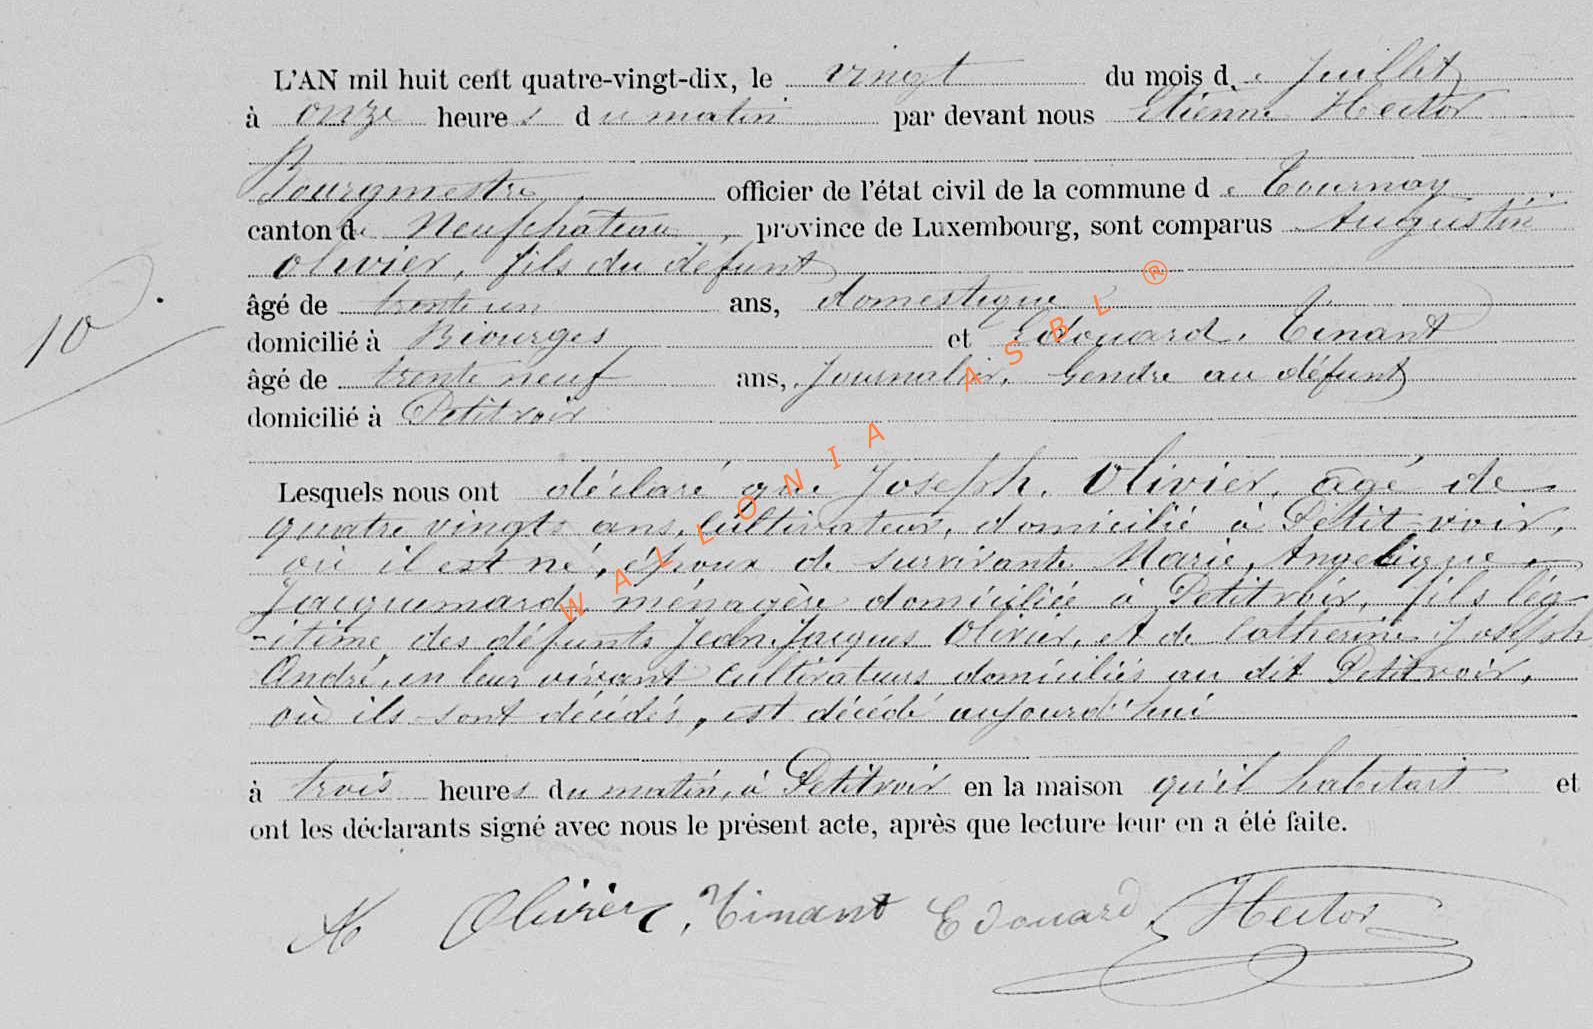 L'AN mil huit cent quatre-vingt-dix, le vingt du mois de Juillet
à onze heures du matin par devant nous Etienne Hector
Bourgmestre officier de l'état civil de la commune de Tournay
canton de Neufchateau, province de Luxembourg, sont comparus Augustin
Olivier, fils du défunt
âgé de trente un ans, domestique
10
domicilié à Biourges et Edouard Tinant
âgé de trente neuf ans, Journalier, Gendre au défunt
domicilié à Petitvoir
Lesquels nous ont déclaré que Joseph Olivier, âgé de
quatre vingts ans, Cultivateur, domicilié à Petit-voir,
où il est né, époux de survivante Marie, Angelique
Jacquemard, ménagère domiciliée à Petitvoir, fils lég
-itime des défunts Jean Jacques Olivier, et de Catherine Joseph
André, en leur vivant Cultivateurs domiciliés au dit Petitvoir,
où ils sont décédés, est décédé aujourd'hui
à trois heures du matin, à Petitvoir en la maison qu'il habitait et
ont les déclarants signé avec nous le présent acte, après que lecture leur en a été faite.
A Olivier, Tinant Edouard Hector
WALLONIA ASBL ®